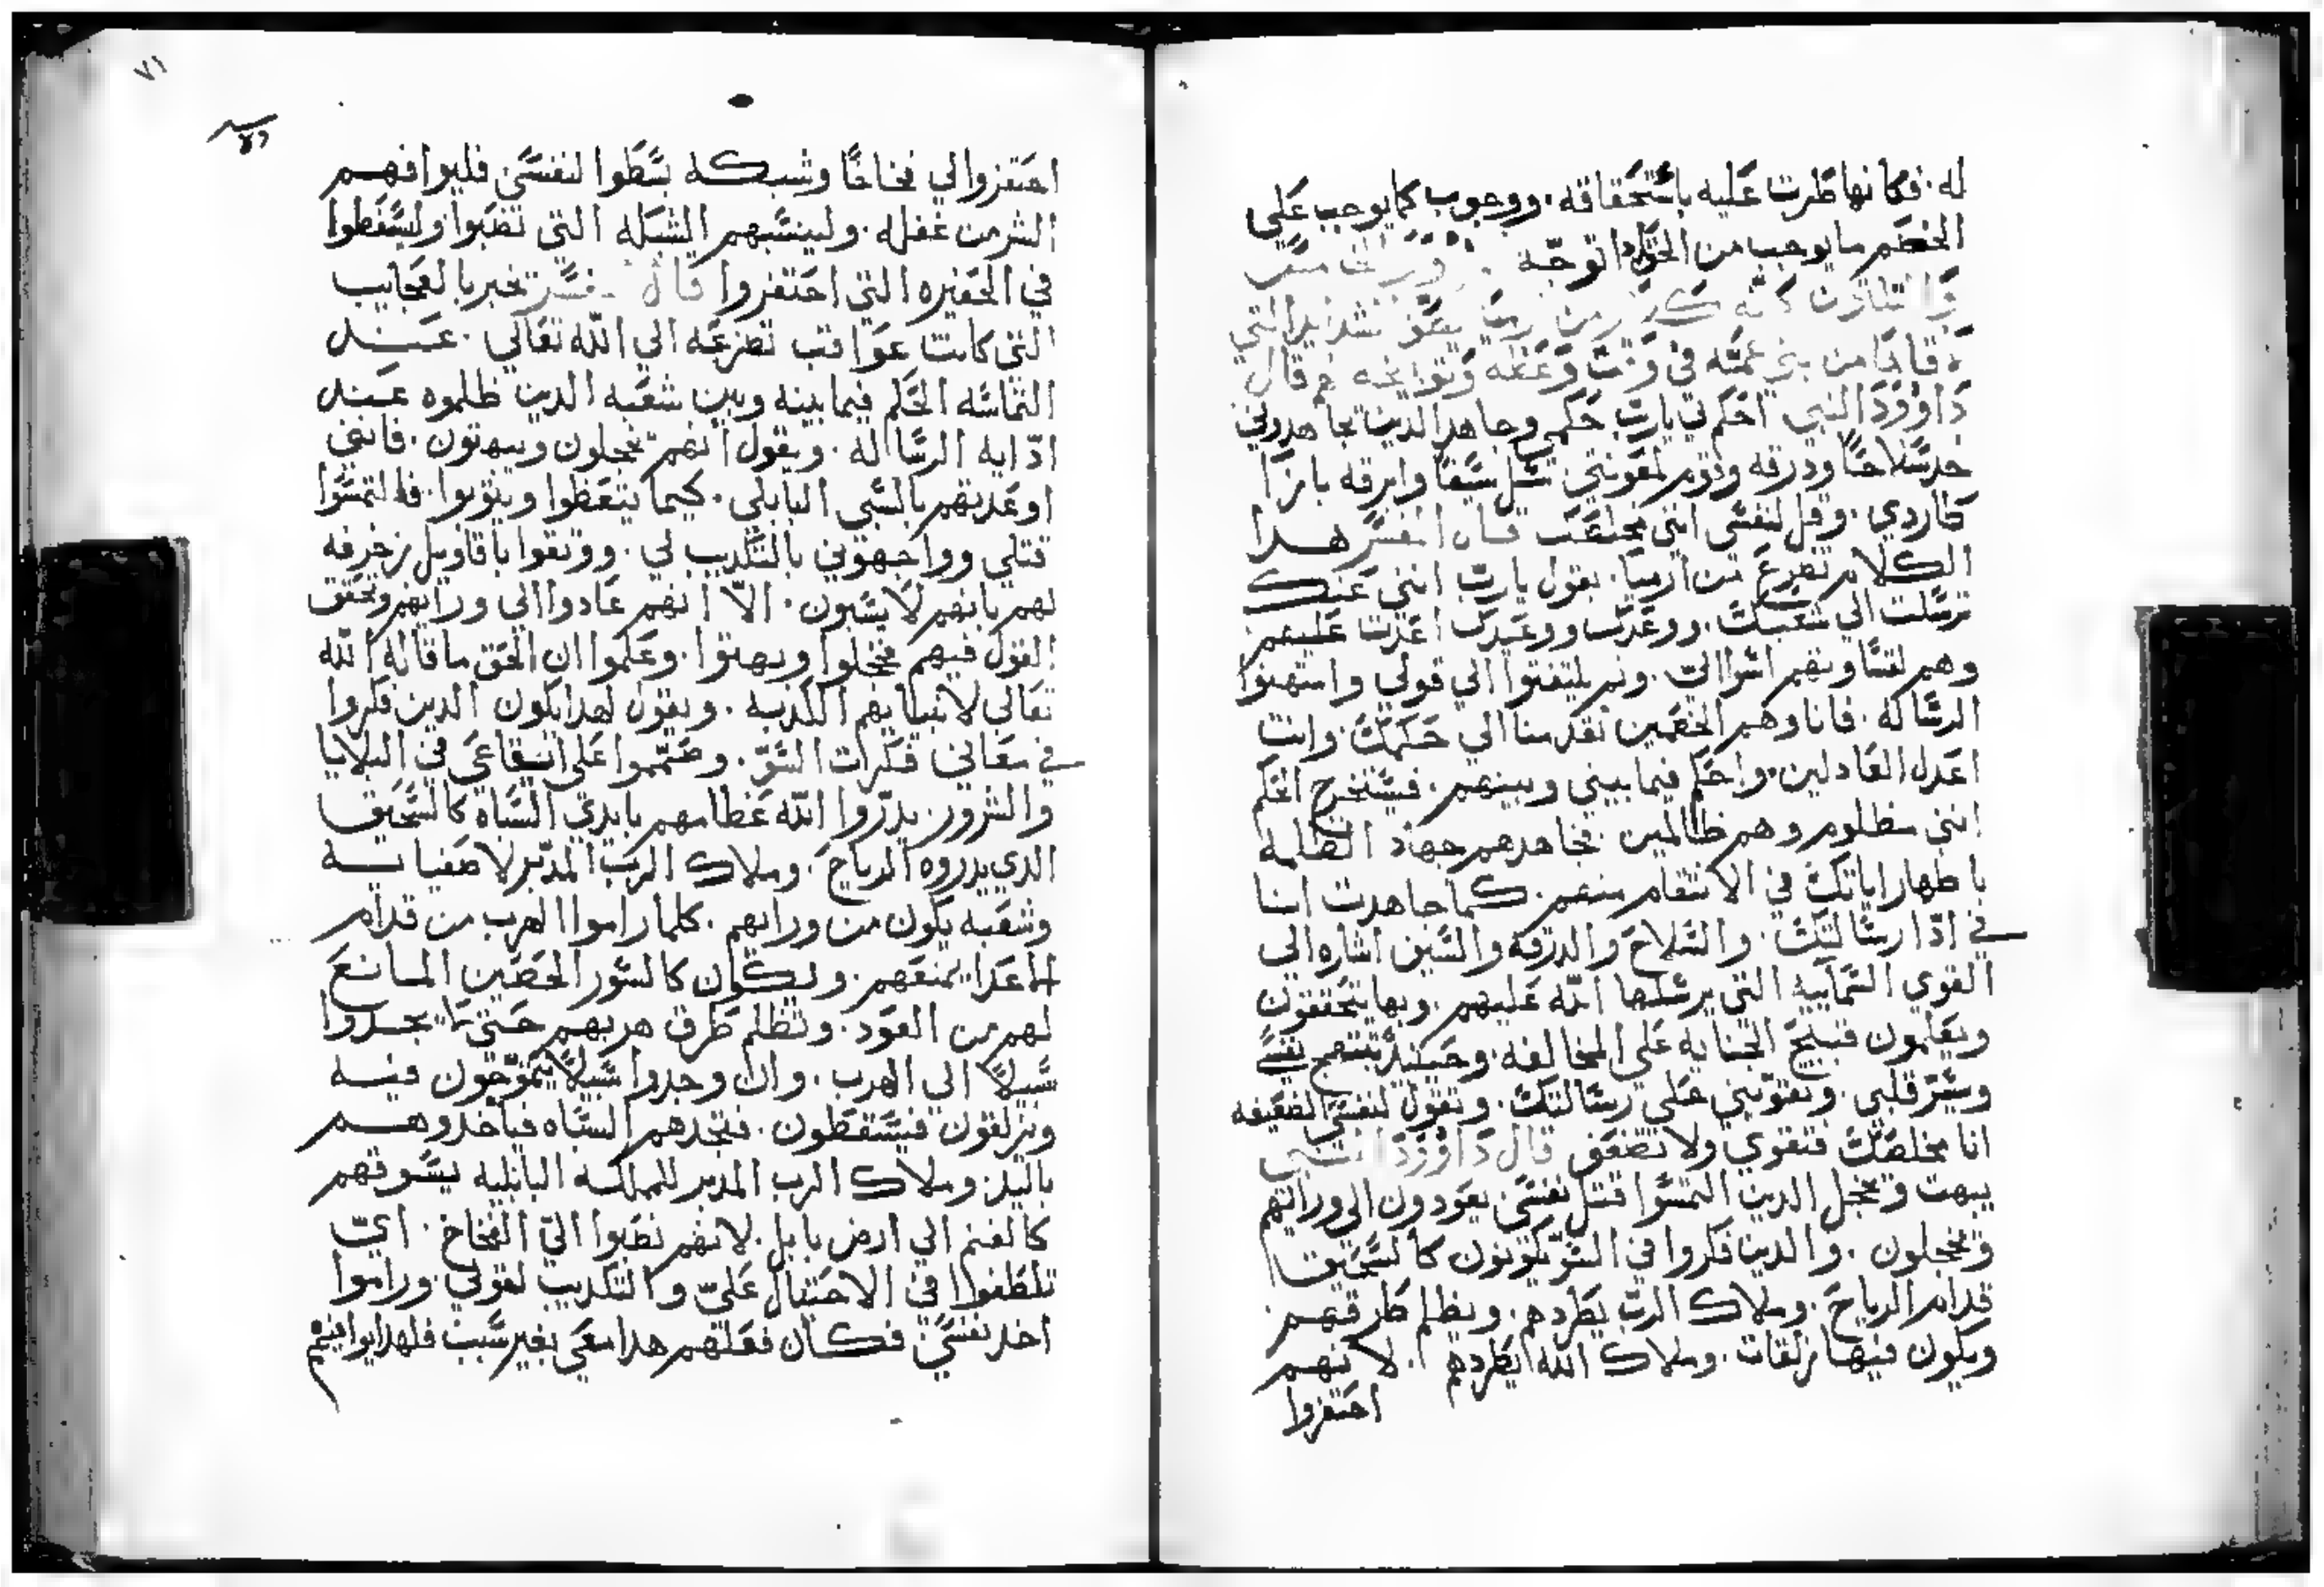 له. فكانها طرت عليه باستحقاقه. ووجوب كما يوجب علي
الخصم ما يوجب من الحق اذا توجه
داوود النبي احكم لي يارب حكمي وجاهد الدين تجاهدوني
خد سلاحًا ودرقه وقوم لمعونتي سل سيفًا وابرقه بازا
طاردي. وقل لنفسي انني مخلصك قال المفسر هدا
الكلام تضرع من ارميا. يقول يارب انني عندك
ترسلت الي شعبك. ووعدك ووعيدك اعدت عليهم
وهم لقساوتهم اسوا الي. ولم يلتفتوا الي قولي واستهنوا
الرساله. فانا وهم الخصمين تقدمنا الي حكمك. وانت
اعدل العادلين. واحكم فيما بيني وبينهم. فيستخرج الحكم
انني مظلوم وهم ظالمين فجاهدهم جهاد الظلمة
باظهار اياتك في الانتقام منهم. كما جاهدت انا
في ادا رسالتك. والسلاح والدرقه والسيف اشاره الي
القوي السمايية التي يرسلها الله عليهم. وبها يتحققون
ويعلمون قبيح الجنايه علي المخالفه. وحينئد تبتهج نفسي
ويسر قلبي. وتقويني علي رسالتك. وتقول لنفسي الضعيفه
انا مخلصك فتقوي ولا تضعف قال داوود النبي
يبهت ويخجل الدين التمسوا قتل نفسي يعودون الي ورايهم
ويخجلون. والدين فكروا في السو يكونون كالسحيق
قدام الرياح. وملاك الرب يطردهم. ويظلم طرقهم
ويكون فيها زلقات. وملاك الله يطردهم. لانهم
احتفزوا
٧١
احتفزوا لي فخاخًا وشبكه بسطوا لنفسي فليوافهم
الشر من غفله. ولينشبهم الشبكه التي نصبوا وليسقطوا
في الحفيره التي احتفروا قال المفسر تخبر بالعجايب
التي كانت عواقب تضرعه الي الله تعالي. عند
التماسه الحكم فيما بينه وبين شعبه الدين ظلموه عند
ادايه الرساله. ويقول انهم يخجلون ويبهتون. فانني
اوعدتهم بالسبي البابلي. كيما يتعظوا ويتوبوا. فالتمسوا
قتلي وواجهوني بالتكديب لي. ووثقوا باقاويل زخرفه
لهم بانهم لا يسبون. الا انهم عادوا الي ورايهم وتحقق
القول فيهم فخجلوا وبهتوا. وعلموا ان الحق ما قاله الله
تعالي لا نبيايهم الكدبه. ويقول لهدا يكون الدين فكروا
في معاني فكرات السو. وصمموا علي ايقاعي في البلايا
والشرور. يدروا الله عظامهم بايدي السباه كالسحيق
الدي يدروه الرياح. وملاك الرب المدبر لاصفيايه
وشعبه يكون من ورايهم. كلما راموا الهرب من قدام
الاعدا يمنعهم. ويكون كالسور الحصين المانع
لهم من العود. وتظلم طرق هربهم حتي لا يجدوا
سبيلًا الي الهرب. وان وجدوا سبيلًا يتموجون فيه
ويزلقون فيسقطون. فتجدهم السباه فياخدوهم
باليد. وملاك الرب المدبر للمملكه البابليه يسوقهم
كالغنم الي ارض بابل. لانهم نصبوا الي الفخاخ. اي
تلطفوا في الاحتيال علي والتكديب لقولي. وراموا
اخد نفسي فكان فعلهم هدا معي بغير سبب فلهدا يوافيهم